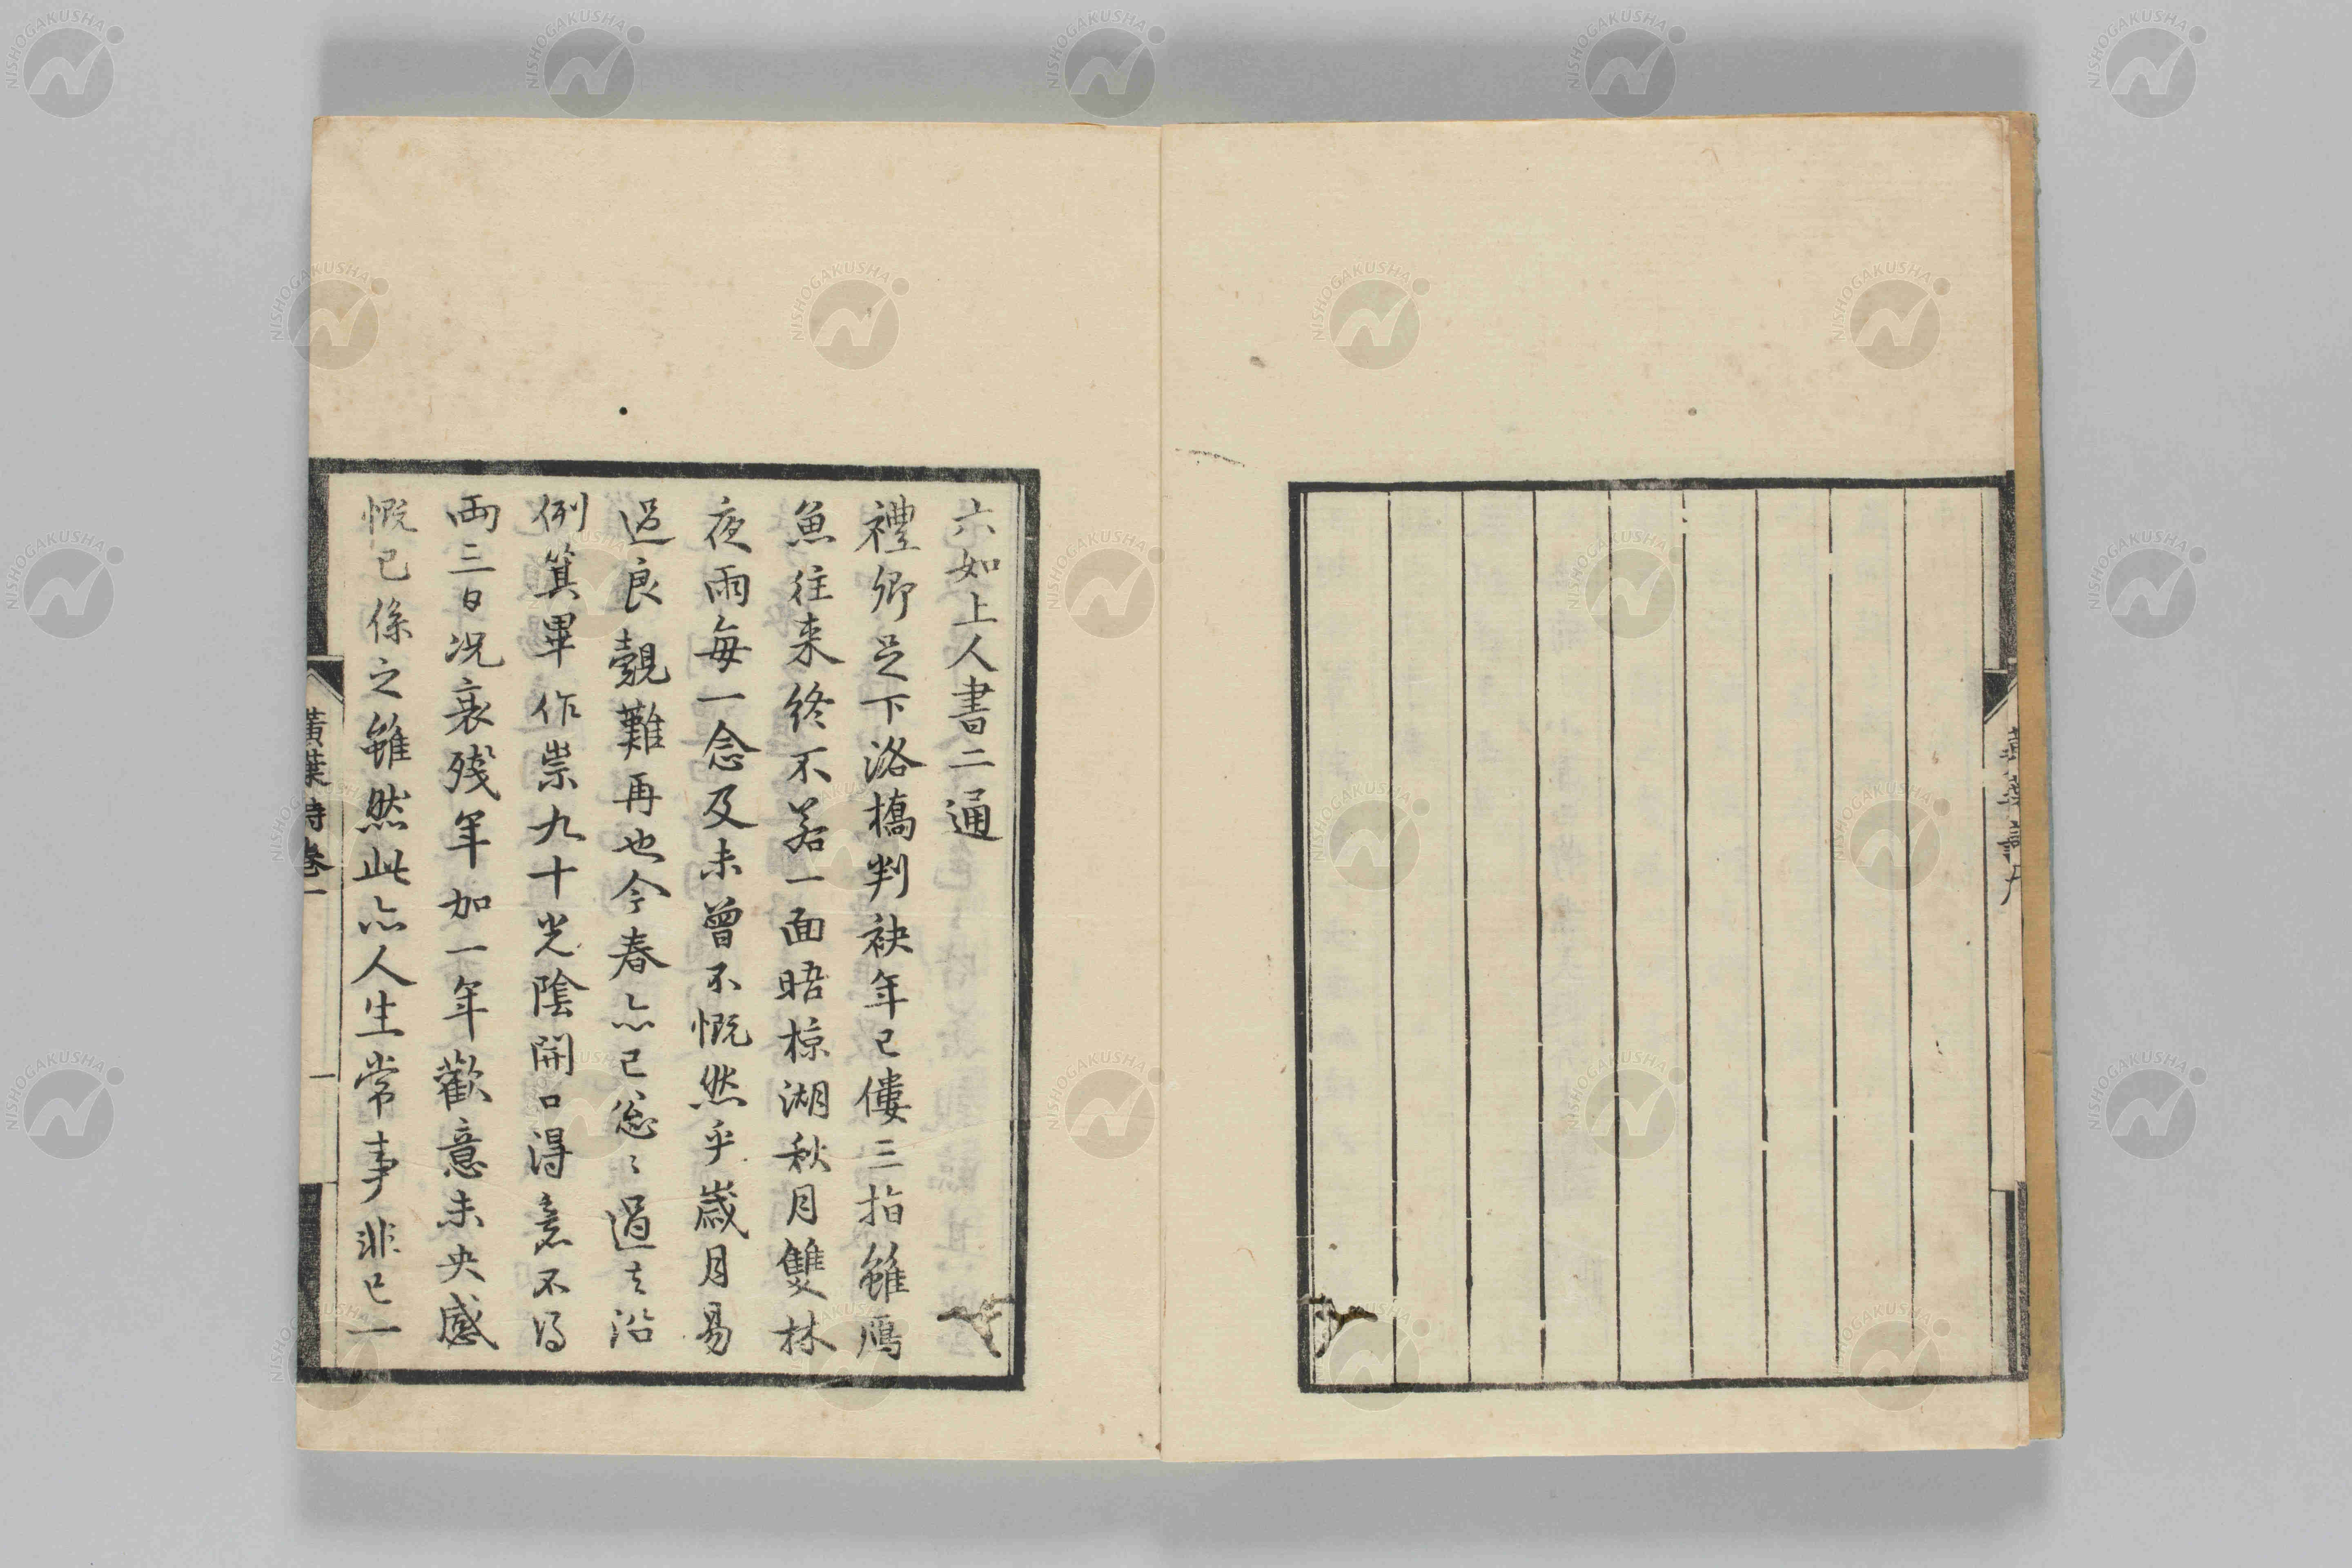 黄葉詩序
六如上人書二通
禮卿足下洛橋判袂年已僂三指雖鴈
魚往来終不若一面晤椋湖秋月雙林
夜雨每一念及未曾不慨然乎歳月易
過良覿難再也今春亦已怱〻過去沿
例箕畢作祟九十光陰開口得意不得
両三日况衰殘年加一年歡意未央感
慨已係之雖然此亦人生常事非已一
黃葉詩卷一
一
NISHOGAKUSHA